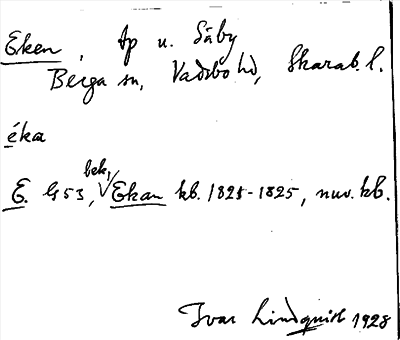 Eken, tp u. Säby
Berga sn, Vadsbo hd, Skarab. l.
éka
bek,
E. G 53, Ekan kb. 1825-1825, nuv. kb.
Ivar Lindquist 1928